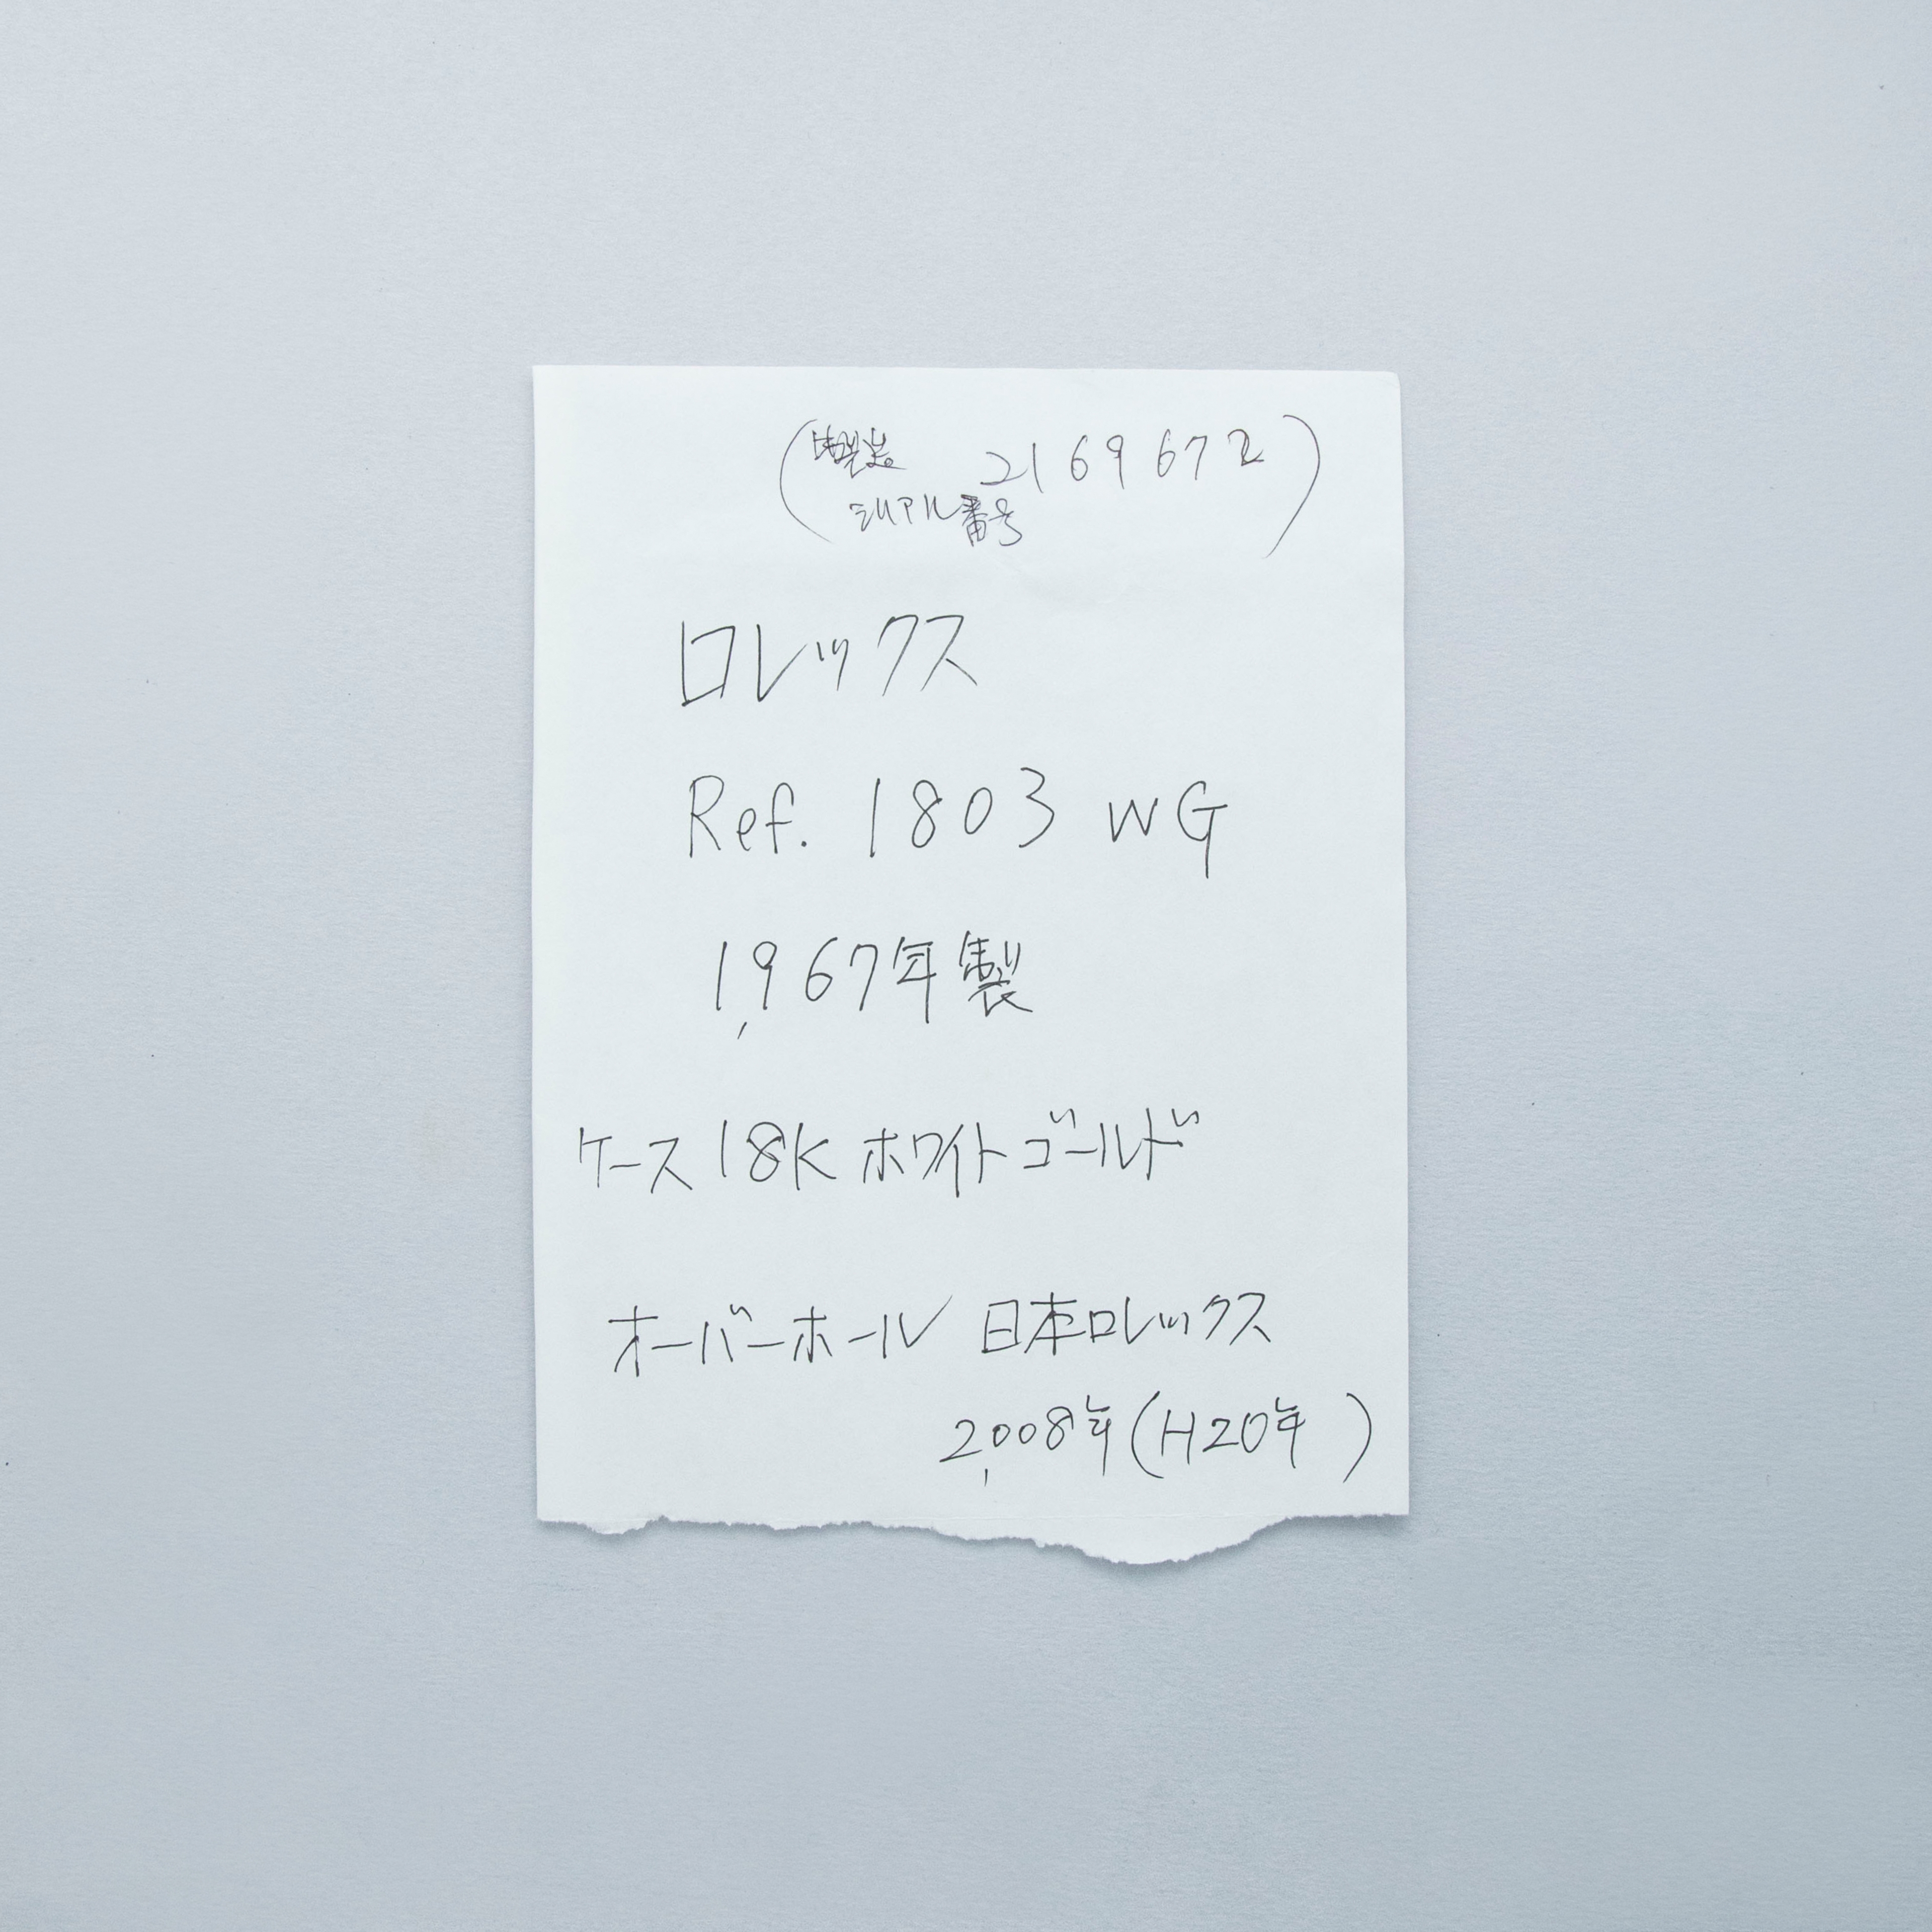 (製造 2169672)
シリアル番号
ロレックス
Ref. 1803 WG
1,967年製
ケース 18K ホワイトゴールド
オーバーホール 日本ロレックス
2,008年(H20年 )